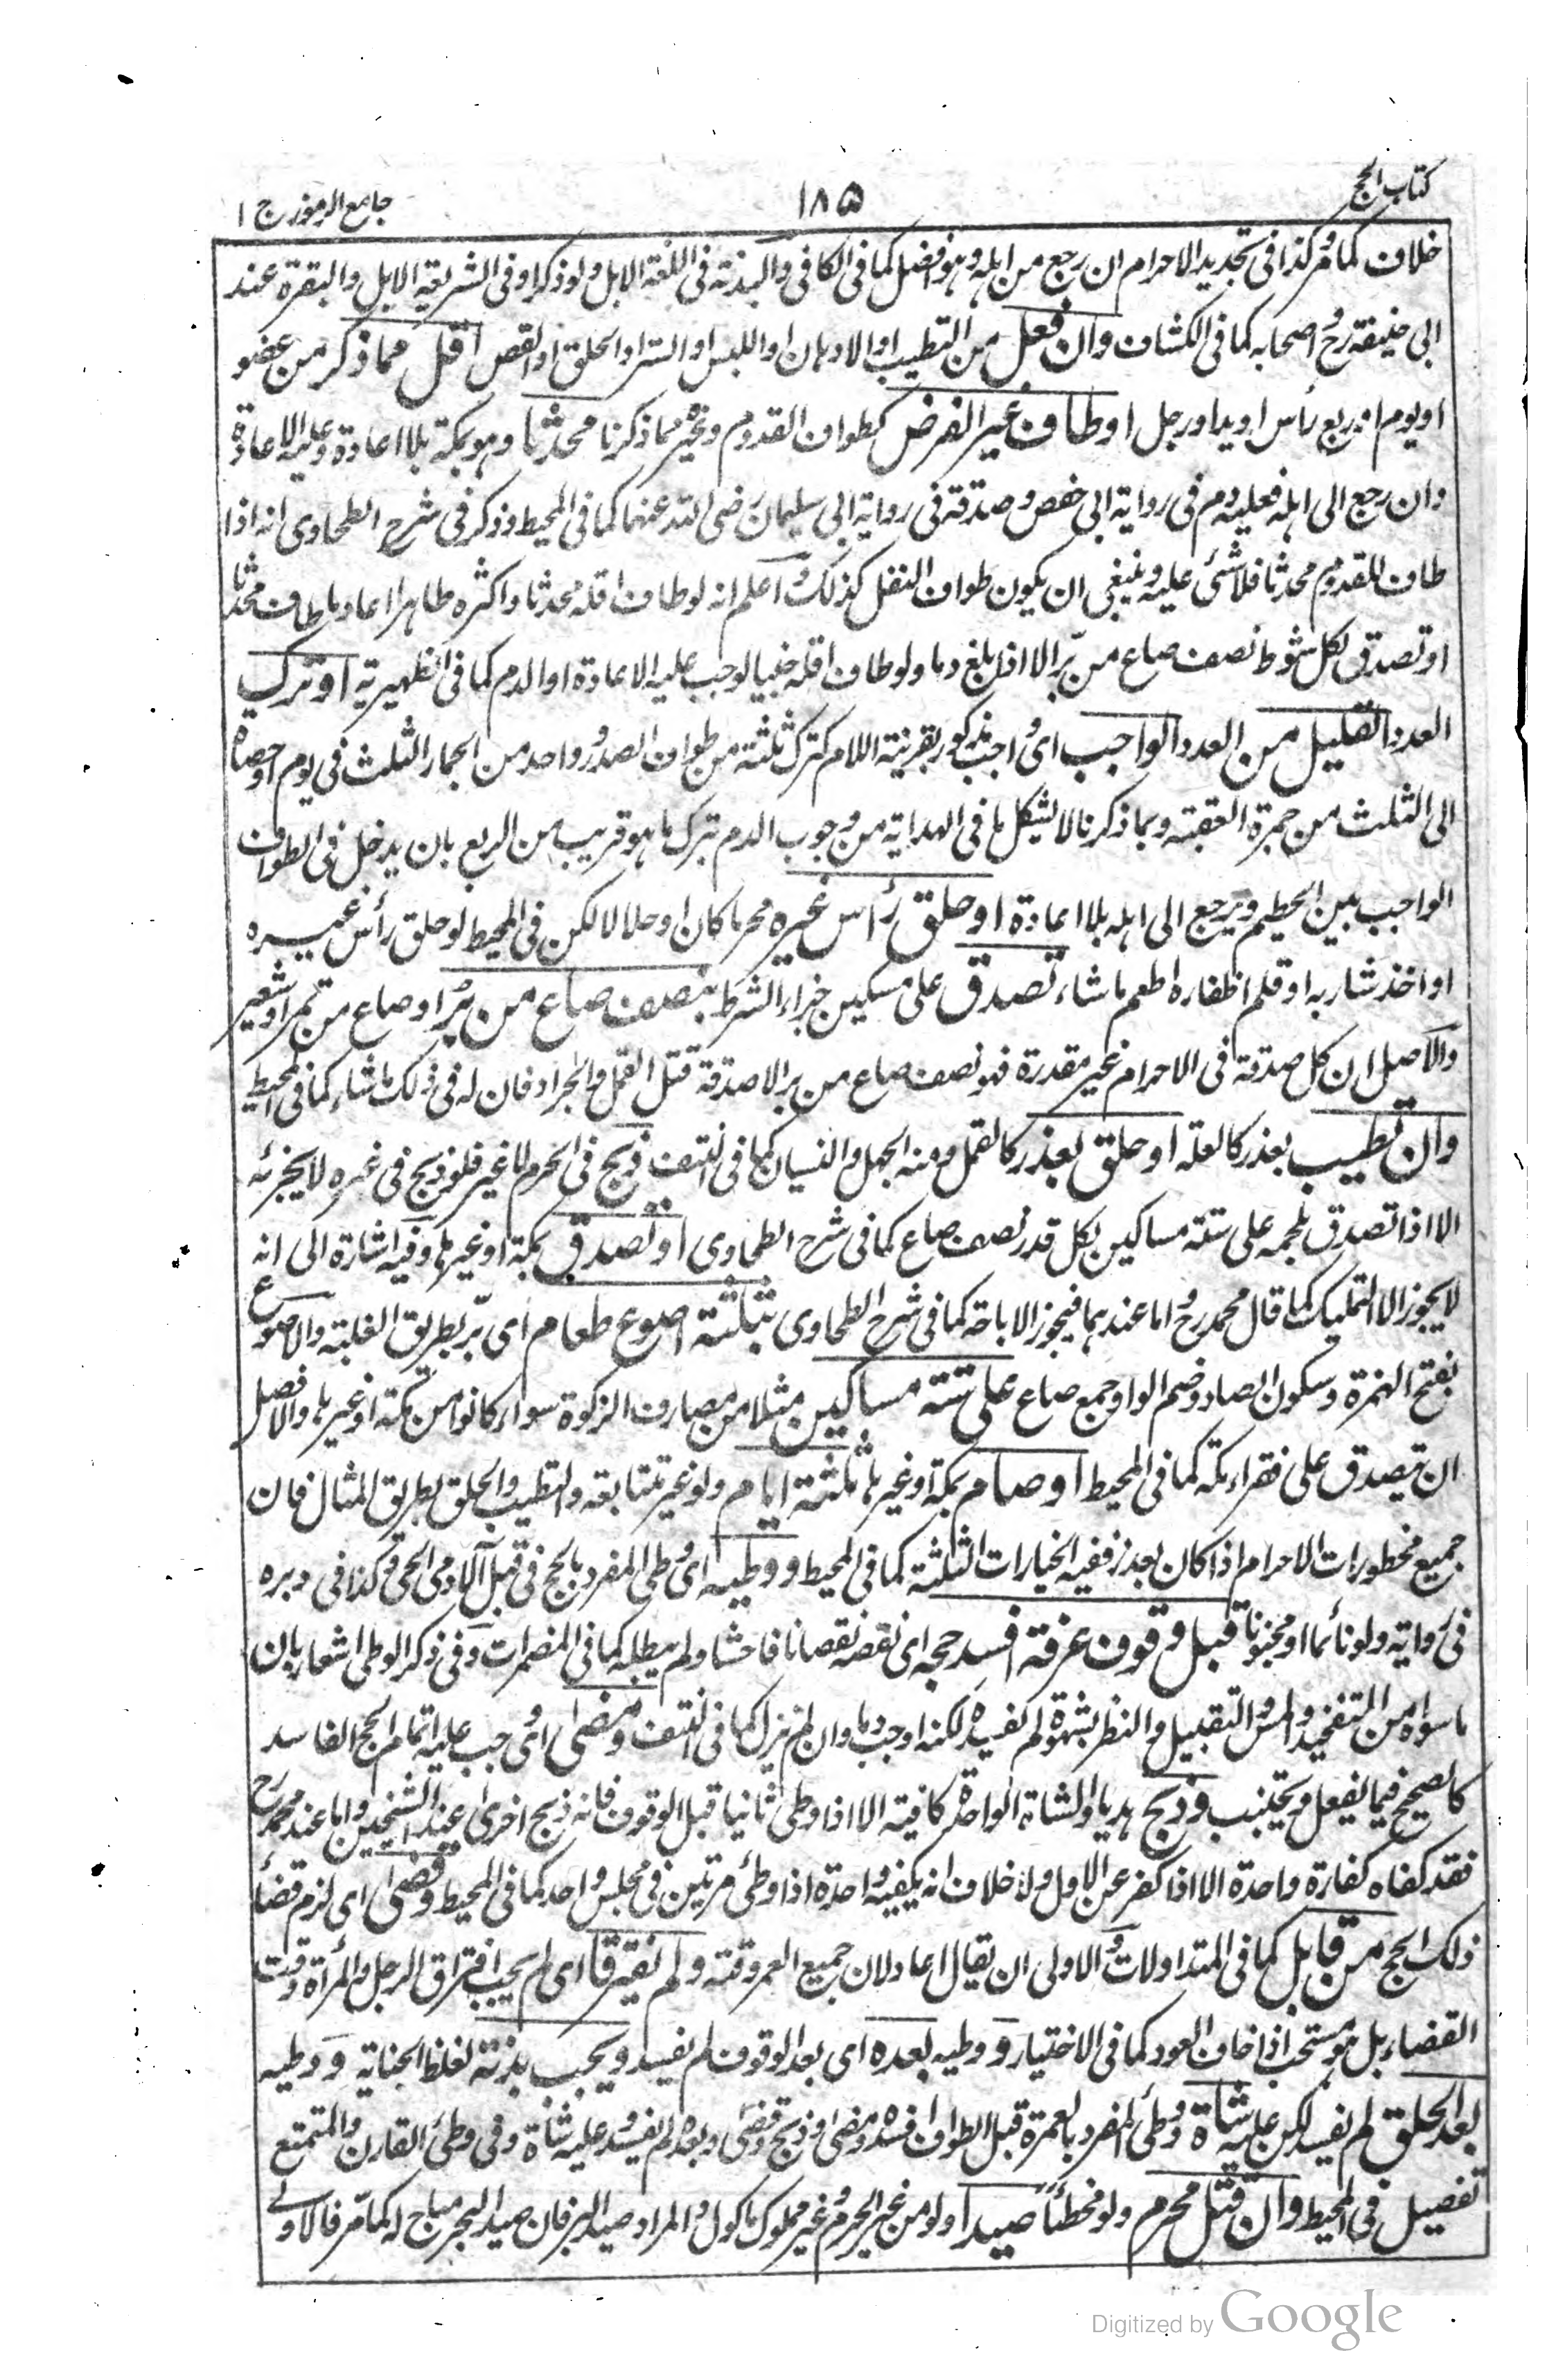 كتاب الحج
١٨٥
جامع الرموز ج ١
خلاف كما مر وكذا في تجديد الاحرام ان رجع من اهله وهو افضل كما في الكافي والبدنة في اللغة الابل ولو ذكرا وفي الشريعة الابل والبقرة عند
ابي حنيفة رح واصحابه كما في الكشاف وان فعل من التطيب او الادهان او اللبس او الستر او الحلق او القص اقل مما ذكر من عضو
او يوم او ربع رأس او يد او رجل او طاف غير الفرض كطواف القدوم ونحوه مما ذكرنا محدثا وهو بمكة بلا اعادة وعليه الاعادة
وان رجع الى اهله فعليه دم في رواية ابي حفص وصدقة في رواية ابي سليمان رضى الله عنهما كما في المحيط وذكر في شرح الطحاوى انه اذا
طاف للقدوم محدثا فلا شئ عليه وينبغي ان يكون طواف النفل كذلك واعلم انه لو طاف اقله محدثا واكثره طاهرا اعاد ما طاف محدثا
او تصدق لكل شوط نصف صاع من بر الا اذا بلغ دما ولو طاف اقله جنبا لوجب عليه الاعادة او الدم كما في الظهيرية او ترك
العدد القليل من العدد الواجب اى واجب مذكور بقرينة اللام كترك ثلثة من طواف الصدر وواحد من الجمار الثلث في يوم او حصاة
الى الثلث من جمرة العقبة وبما ذكرنا لا يشكل ما في الهداية من وجوب الدم بترك ما هو قريب من الربع بان يدخل في الطواف
الواجب بين الحطيم ويرجع الى اهله بلا اعادة او حلق رأس غيره محرما كان او حلالا لكن في المحيط لو حلق رأس غيره
او اخذ شاربه او قلم اظفاره اطعم ما شاء تصدق على مسكين جزاء الشرط بنصف صاع من بر او صاع من تمر او شعير
والاصل ان كل صدقة في الاحرام غير مقدرة فهو نصف صاع من بر الا صدقة قتل القمل والجراد فان له في ذلك ما شاء كما في المحيط
وان تطيب بعذر كالعلة او حلق بعذر كالقمل ومنه الجهل والنسيان كما في النتف ذبح في الحرم لا غير فلو ذبح في غيره لا يجزئه
الا اذا تصدق بلحمه على ستة مساكين لكل قدر نصف صاع كما في شرح الطحاوى او تصدق بمكة او غيرها وفيه اشارة الى انه
لا يجوز الا التمليك كما قال محمد رح واما عندهما فيجوز الاباحة كما في شرح الطحاوى بثلثة اصوع طعام اى بر بطريق الغلبة والاصوع
بفتح الهمزة وسكون الصاد وضم الواو جمع صاع على ستة مساكين مثلا من مصارف الزكوة سواء كانوا من مكة او غيرها والافضل
ان يتصدق على فقراء مكة كما في المحيط او صام بمكة او غيرها ثلثة ايام ولو غير متتابعة والتطيب والحلق بطريق المثال فان
جميع محظورات الاحرام اذا كان بعذر ففيه الخيارات الثلثة كما في المحيط ووطيه اى وطى المفرد بالحج في قبل الآدمى الحي وكذا في دبره
في رواية ولو نائما او مجنونا قبل وقوف عرفة افسد حجه اى نقصه نقصانا فاحشا ولم يبطله كما في المضمرات وفي ذكر الوطى اشعار بان
ما سواه من التفخيذ والمس والتقبيل والنظر بشهوة لم يفسده لكنه اوجب دما وان لم ينزل كما في النتف ومضى اى وجب عليه اتمام الحج الفاسد
كالصحيح فيما يفعل ويجتنب وذبح هديا والشاة الواحدة كافية الا اذا وطى ثانيا قبل الوقوف فانه ذبح اخرى عند الشيخين واما عند محمد رح
فقد كفاه كفارة واحدة الا اذا كفر عن الاول ولا خلاف انه يكفيه واحدة اذا وطئ مرتين في مجلس واحد كما في المحيط وقضى اى لزم قضاء
ذلك الحج من قابل كما في المتداولات والاولى ان يقال اعاد لان جميع العمر وقته ولم يفترقا اى لم يجب افتراق الرجل والمرأة وقت
القضاء بل هو مستحب اذا خاف العود كما في الاختيار ووطيه بعده اى بعد الوقوف لم يفسد ويجب بدنة لغلظ الجناية ووطيه
بعد الحلق لم يفسد لكن عليه شاة ووطئ المفرد بالعمرة قبل الطواف افسده ومضى وذبح وقضى وبعده لم يفسد وعليه شاة وفي وطئ القارن والمتمتع
تفصيل في المحيط وان قتل محرم ولو مخطئا صيدا ولو من غير الحرم وغير مملوك ماكول والمراد صيد البر فان صيد البحر مباح له كما مر فالاولى
Digitized by Google